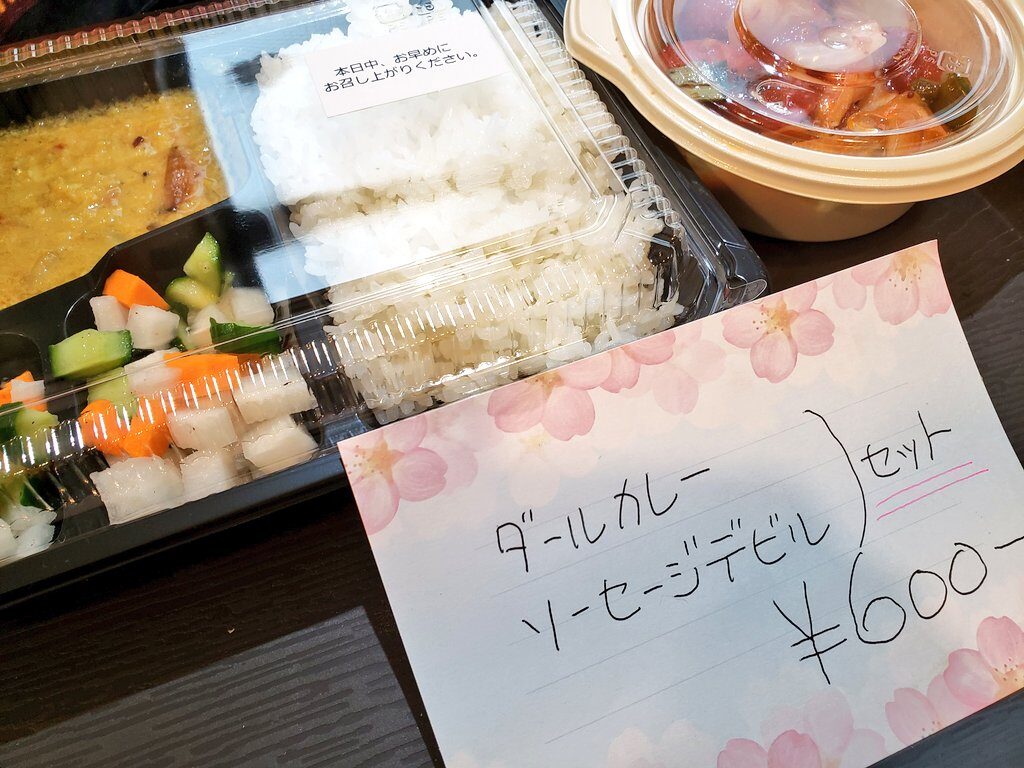 本日中、お早めに
お召し上がりください。
ダールカレー
ソーセージデビル
セット
¥600-